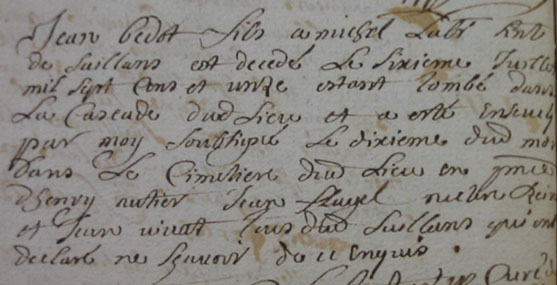 Jean bedot fils a michel Labr
de Saillans est decedé Le Sixieme Juille
mil sept Cens et unze estant tombé dans
La Cascade dud Lieu et a esté Enseveli
par moy Soubsigné Le dixieme dud moi
dans Le Cimetiere dud Lieu en pnce
dhenry autier Jean
et Jean vivat tous dud Saillans qui ont
declaré ne Scavoir de ce Enquis
Curé